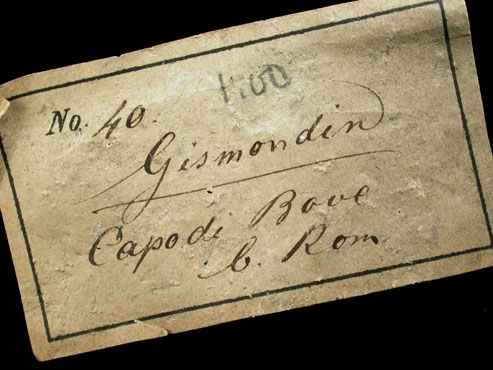 1.00
No. 40.
Gismondin
Capo di Bove
b. Rom